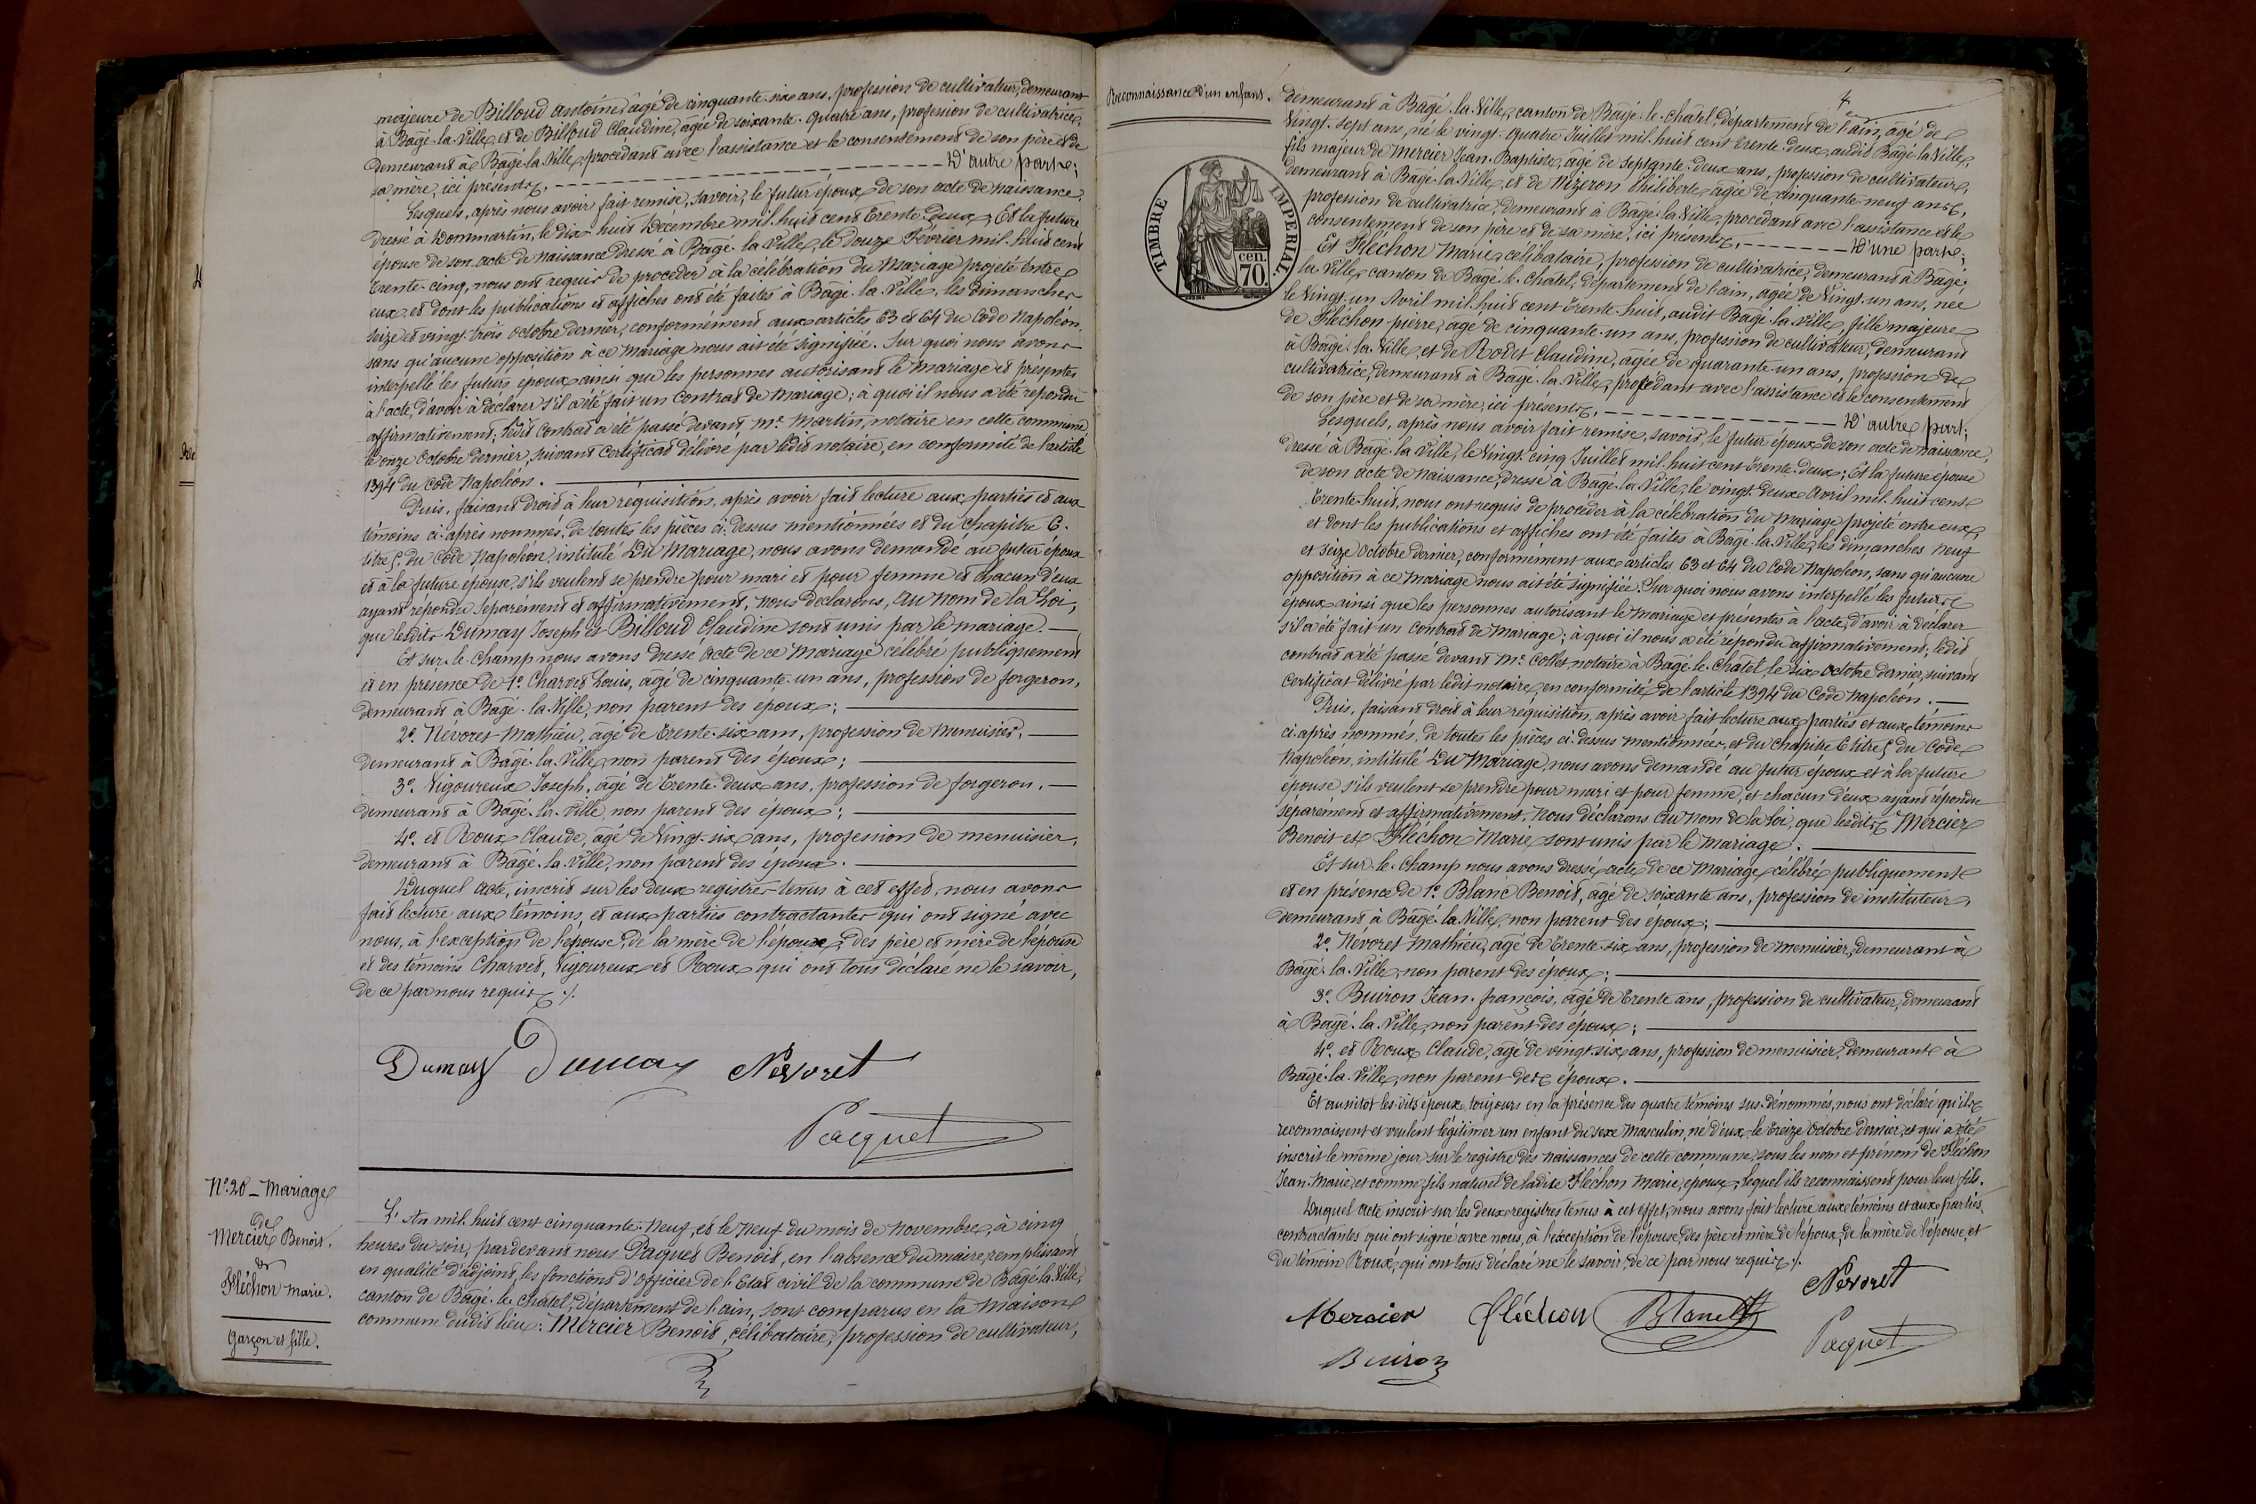 majeure de Billoud Antoine, âgé de cinquante-six ans, profession de cultivateur, demeurant
à Bâgé-la-Ville, et de Billoud Claudine, âgée de soixante-quatre ans, profession de cultivatrice,
demeurant à Bâgé-la-Ville, procédant avec l'assistance et le consentement de son père et de
sa mère, ici présents, D'autre part;
Lesquels, après nous avoir fait remise, savoir, le futur époux de son acte de naissance
dressé à Dommartin, le dix-huit Décembre mil huit cent trente-deux; Et la future
épouse de son acte de naissance dressé à Bâgé-la-Ville, le douze Février mil-huit cent
trente-cinq, nous ont requis de procéder à la célébration du Mariage projeté entre
eux et dont les publications et affiches ont été faites à Bâgé-la-Ville, les dimanches
seize et vingt-trois octobre dernier, conformément aux articles 63 et 64 du Code Napoléon,
sans qu'aucune opposition à ce Mariage nous ait été signifiée. Sur quoi nous avons
interpellé les futurs époux ainsi que les personnes autorisant le mariage et présentes
à l'acte, d'avoir à déclarer s'il a été fait un Contrat de Mariage; à quoi il nous a été répondu
affirmativement; ledit Contrat a été passé devant Mc. Martin, notaire en cette commune
le onze Octobre dernier, suivant Certificat délivré par ledit notaire, en conformité de l'article
1394 du Code Napoléon.
Puis, faisant droit à leur réquisition, après avoir fait lecture aux parties et aux
témoins ci-après nommés, de toutes les pièces ci-dessus mentionnées et du Chapitre 6.
titre 5. du Code Napoléon, intitulé Du Mariage, nous avons demandé au futur époux
et à la future épouse, s'ils veulent se prendre pour mari et pour femme et chacun d'eux
ayant répondu séparément et affirmativement, nous déclarons, Au Nom de la Loi,
que lesdits Dumay Joseph et Billoud Claudine sont unis par le mariage.
Et sur-le-champ nous avons dressé acte de ce Mariage célébré publiquement
et en présence de 1º. Charvet Louis, âgé de cinquante-un ans, profession de forgeron,
demeurant à Bâgé-la-Ville, non parent des époux;
2º. Névoret Mathieu, âgé de trente-six ans, profession de menuisier,
demeurant à Bâgé-la-Ville, non parent des époux;
3º. Vigoureux Joseph, âgé de trente-deux ans, profession de forgeron,
demeurant à Bâgé-la-Ville, non parent des époux;
4º. et Roux Claude, âgé de Vingt-six ans, profession de menuisier,
demeurant à Bâgé-la-Ville, non parent des époux.
Duquel Acte, inscrit sur les deux registres tenus à cet effet, nous avons
fait lecture aux témoins, et aux parties contractantes qui ont signé avec
nous, à l'exception de l'épouse, de la mère de l'époux, des père et mère de l'épouse
et des témoins Charvet, Vigoureux et Roux qui ont tous déclaré ne le savoir,
de ce par nous requis ./.
Dumay Dumay Névoret
Pacquet
Nº. 20 – Mariage
de
Mercier Benoit.
et
Fléchon Marie.
Garçon et fille.
L'An mil huit cent cinquante-neuf, et le Neuf du mois de Novembre, à cinq
heures du soir, pardevant nous Paquet Benoit, en l'absence du maire, remplissant
en qualité d'adjoint, les fonctions d'Officier de l'Etat civil de la commune de Bâgé-la-Ville,
canton de Bâgé-le-Châtel, département de l'ain, sont comparus en la Maison
commune dudit lieu: Mercier Benoit, célibataire, profession de cultivateur,
Reconnaissance d'un enfant.
demeurant à Bâgé-la-Ville, canton de Bâgé-le-Châtel, département de l'ain, âgé de
vingt-sept ans, né le vingt-quatre Juillet mil-huit cent trente-deux, audit Bâgé-la-Ville,
fils majeur de Mercier Jean-Baptiste, âgé de septante-deux ans, profession de cultivateur,
demeurant à Bâgé-la-Ville, et de Nizeron Philiberte, âgée de cinquante-neuf ans,
profession de cultivatrice, demeurant à Bâgé-la-Ville, procédant avec l'assistance et le
consentement de son père et de sa mère, ici présents, D'une part;
TIMBRE IMPÉRIAL.
cen.
70.
Et Fléchon Marie, célibataire, profession de cultivatrice, demeurant à Bâgé-
la-Ville, canton de Bâgé-le-Châtel, département de l'ain, âgée de vingt-un ans, née
le Vingt-un Avril mil-huit cent trente-huit, audit Bâgé-la-Ville, fille majeure
de Fléchon pierre, âgé de cinquante-un ans, profession de cultivateur, demeurant
à Bâgé-la-Ville, et de Rodet Claudine, âgée de quarante-un ans, profession de
cultivatrice, demeurant à Bâgé-la-Ville, procédant avec l'assistance et le consentement
de son père et de sa mère, ici présents, D'autre part;
Lesquels, après nous avoir fait remise, savoir, le futur époux de son acte de naissance,
dressé à Bâgé-la-Ville, le vingt-cinq Juillet mil-huit cent trente-deux; Et la future épouse
de son acte de naissance, dressé à Bâgé-la-Ville, le vingt-deux Avril mil-huit cent
trente-huit, nous ont requis de procéder à la célébration du Mariage projeté entre eux
et dont les publications et affiches ont été faites à Bâgé-la-Ville, les dimanches neuf
et seize Octobre dernier, conformément aux articles 63 et 64 du Code Napoléon, sans qu'aucune
opposition à ce Mariage nous ait été signifiée. Sur quoi nous avons interpellé les futurs
époux ainsi que les personnes autorisant le Mariage et présentes à l'acte, d'avoir à déclarer
s'il a été fait un Contrat de Mariage; à quoi il nous a été répondu affirmativement, ledit
contrat a été passé devant Mc. Collet, notaire à Bâgé-le-Châtel, le six Octobre dernier, suivant
Certificat délivré par ledit notaire, en conformité de l'article 1394 du Code Napoléon.
Puis, faisant droit à leur réquisition, après avoir fait lecture aux parties et aux témoins
ci-après nommés, de toutes les pièces ci-dessus mentionnées, et du chapitre 6 titre 5 du Code
Napoléon, intitulé Du Mariage, nous avons demandé au futur époux et à la future
épouse s'ils veulent se prendre pour mari et pour femme, et chacun d'eux ayant répondu
séparément et affirmativement, Nous déclarons Au Nom de la Loi, que lesdits Mercier
Benoit et Fléchon Marie sont unis par le Mariage.
Et sur-le-champ nous avons dressé acte de ce Mariage célébré publiquement
et en présence de 1º. Blanc Benoit, âgé de soixante ans, profession de instituteur,
demeurant à Bâgé-la-Ville, non parent des époux;
2º. Névoret Mathieu, âgé de trente-six ans, profession de menuisier, demeurant à
Bâgé-la-Ville, non parent des époux;
3º. Buiron Jean-françois, âgé de trente ans, profession de cultivateur, demeurant
à Bâgé-la-Ville, non parent des époux;
4º. et Roux Claude, âgé de vingt-six ans, profession de menuisier, demeurant à
Bâgé-la-Ville, non parent des époux.
Et aussitôt lesdits époux, toujours en la présence des quatre témoins sus-dénommés, nous ont déclaré qu'ils
reconnaissent et veulent légitimer un enfant du sexe Masculin, né d'eux, le treize Octobre dernier, et qui a été
inscrit le même jour sur le registre des naissances de cette commune, sous les nom et prénom de Fléchon
Jean-Marie, et comme fils naturel de ladite Fléchon Marie, épouse, lequel ils reconnaissent pour leur fils.
Duquel acte inscrit sur les deux registres tenus à cet effet, nous avons fait lecture aux témoins et aux parties
contractantes qui ont signé avec nous, à l'exception de l'épouse, des père et mère de l'époux, de la mère de l'épouse, et
du témoin Roux, qui ont tous déclaré ne le savoir, de ce par nous requis ./.
Névoret
Mercier fléchon Blanc
Pacquet
Buiron